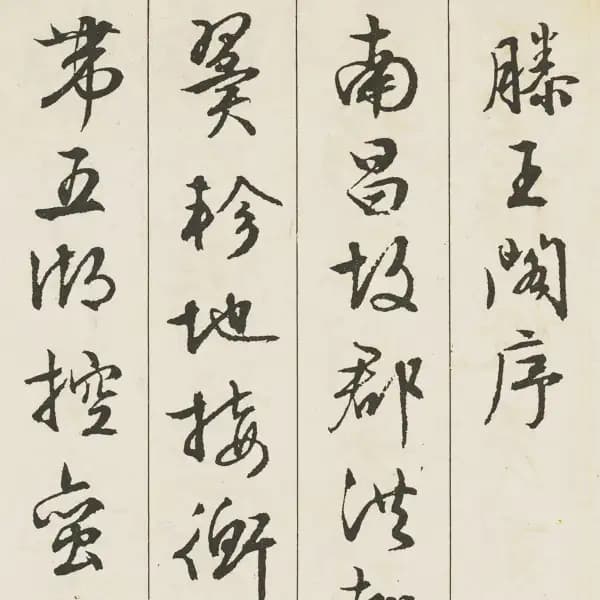 滕王閣序
南昌故郡洪都
翼軫地接衡
帶五湖控蠻